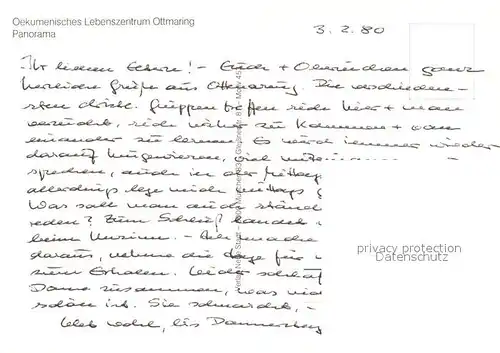 Oekumenisches Lebenszentrum Ottmaring
Panorama
3. 2. 80
Ihr lieben Eltern! - Euch + Oberinchen ganz
herzliche Grüße aus Ottmaring. Die verschieden-
sten christl. Gruppen treffen sich hier + man
versucht, sich näher zu kommen + von
einander zu lernen. Es wird immer wieder
darauf hingewiesen, viel
sprechen, auch in der Mittag
allerdings lege mich mittags
Was soll man auch ständ
reden? Zum Schluß landet
beim Unsinn. - Ich mache
daraus, nehme die Tage für
zum Erholen. Leider schlaf
Dame zusammen, was nic
schön ist. Sie schnarcht, -
Lebt wohl, bis Donnerstag
Verlag Neue Stadt
privacy protection
Datenschutz